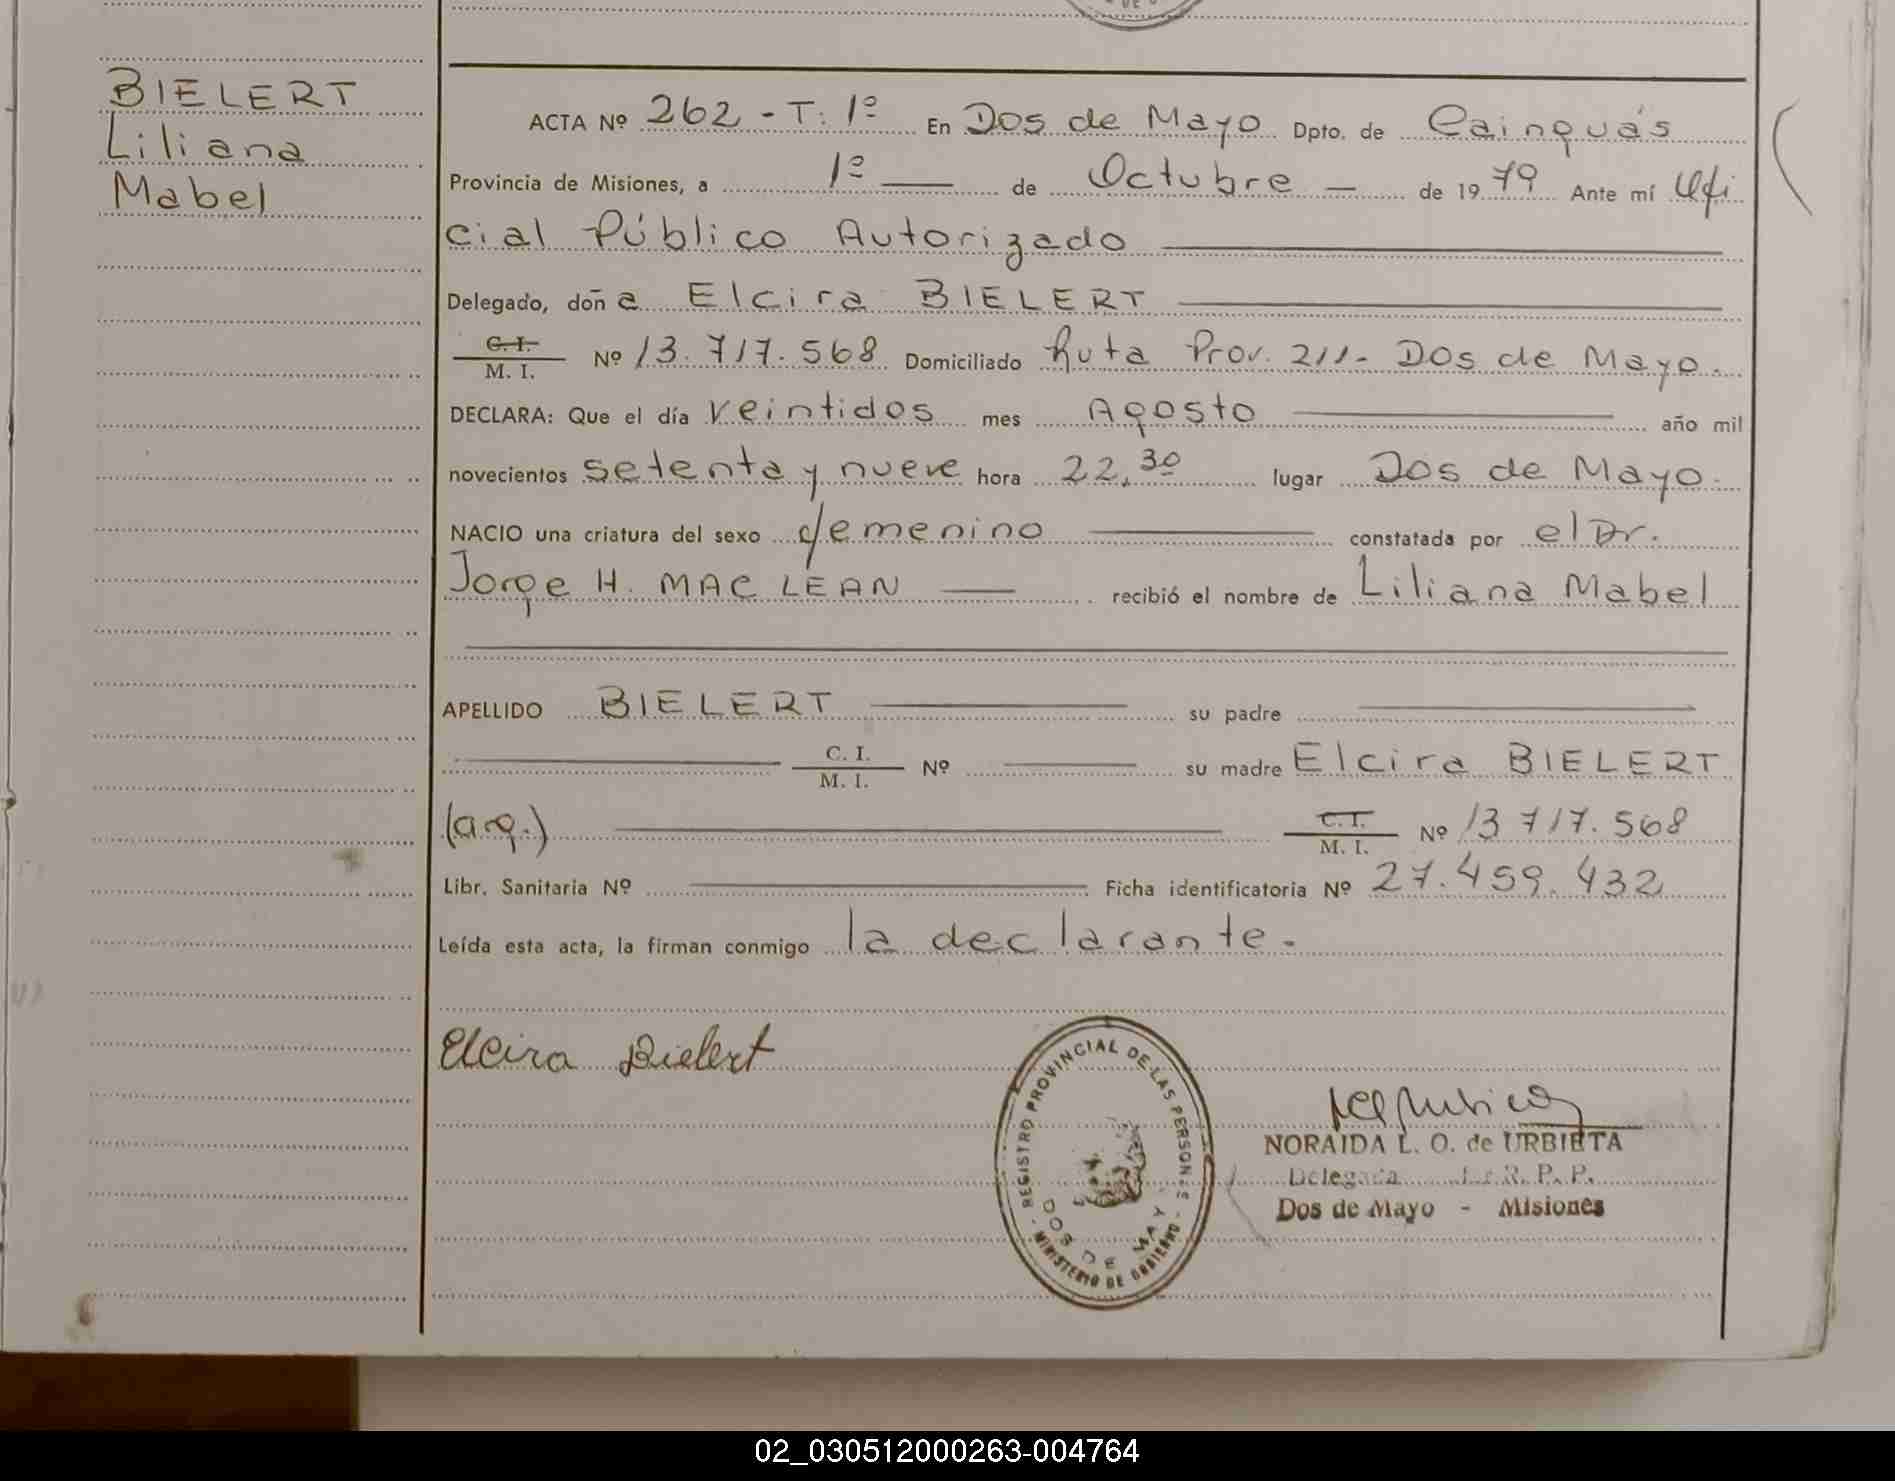 BIELERT
Liliana
Mabel
ACTA Nº 262 - T: 1º En Dos de Mayo Dpto. de Cainguás
Provincia de Misiones, a 1º — de Octubre — de 1979 Ante mí Ofi
cial Público Autorizado
Delegado, doña Elcira BIELERT
C. I.
M. I. Nº 13.717.568 Domiciliado Ruta Prov. 211- Dos de Mayo.
DECLARA: Que el día veintidos mes Agosto año mil
novecientos setenta y nueve hora 22,30 lugar Dos de Mayo.
NACIO una criatura del sexo femenino constatada por el Dr.
Jorge H. MAC LEAN — recibió el nombre de Liliana Mabel
APELLIDO BIELERT su padre
C. I.
M. I. Nº su madre Elcira BIELERT
(arg.) C. I.
M. I. Nº 13 717.568
Libr. Sanitaria Nº Ficha identificatoria Nº 27.459.432
Leída esta acta, la firman conmigo la declarante.
Elcira Bielert
REGISTRO PROVINCIAL DE LAS PERSONAS
DOS DE MAYO
MINISTERIO DE GOBIERNO
NORAIDA L. O. de URBIETA
Delegada R. P. P.
Dos de Mayo - Misiones
02_030512000263-004764